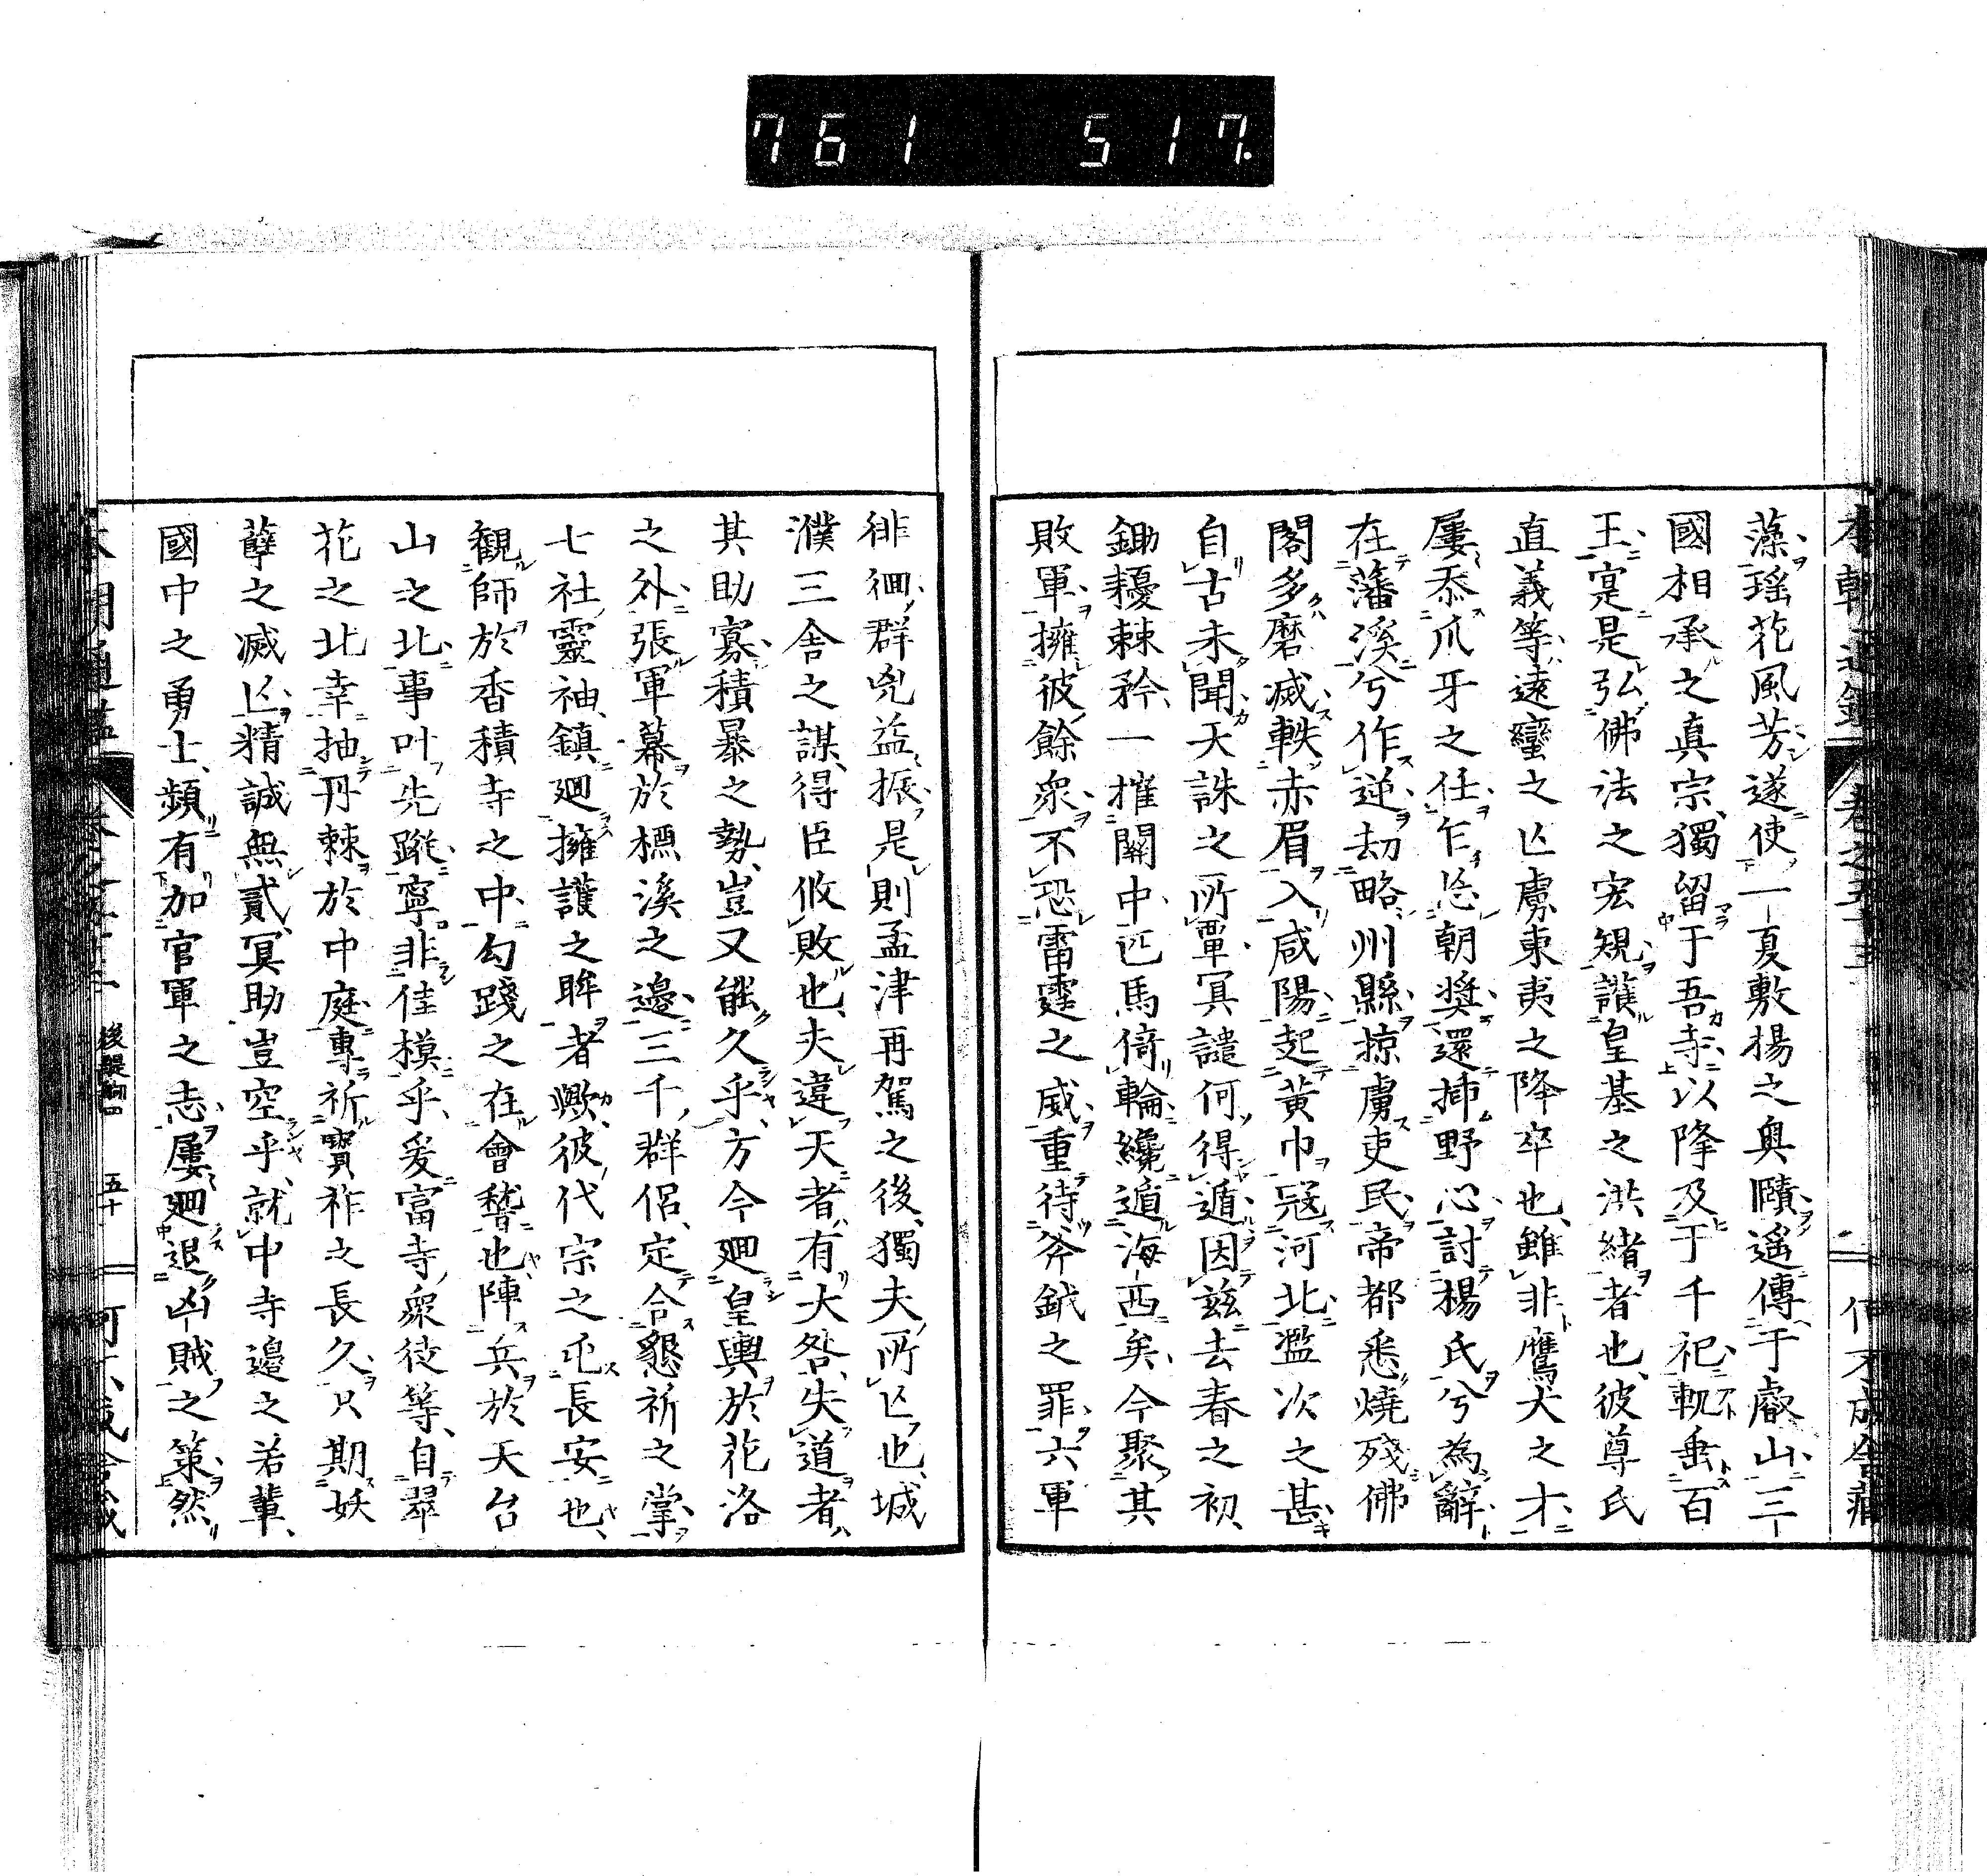 761 517.
藻瑶花風芳遂使一夏敷揚之奥賾遥傳于叡山三
國相承之真宗獨留于吾寺以降及于千祀軏垂百
王寔是弘佛法之宏規護皇基之洪緒者也彼尊氏
直義等遠蠻之亾虜東夷之降卒也雖非鷹犬之才
屢忝爪牙之任乍忘朝奬還挿野心討楊氏兮為辭
在藩溪兮作逆刧略州縣掠虜吏民帝都悉燒殘佛
閣多磨滅軼赤眉入咸陽起黄巾冦河北濫吹之甚
自古未聞天誅之所覃冥譴何得遁因茲去春之初
鋤耰棘矜一摧關中匹馬倚輪纔遁海西矣今聚其
敗軍擁彼餘衆不恐雷霆之威重待斧鉞之罪六軍
徘徊群兇益振是則孟津再駕之後獨夫所亾也城
濮三舎之謀得臣攸敗也夫違天者有大咎失道者
其助寡積暴之勢豈又能久乎方今廻皇輿於花洛
之外張軍幕於櫏溪之邊三千群侶定合懇祈之掌
七社靈神鎮廻擁護之眸者歟彼代宗之屯長安也
観師於香積寺之中勾踐之在會嵆也陣兵於天台
山之北事叶先蹤寧非佳模乎爰富寺衆徒等自翠
花之北幸抽丹棘於中庭專祈寳祚之長久只期妖
孽之滅亾精誠無貳冥助豈空乎就中寺邊之若輩
國中之勇士頻有加官軍之志屢廻退凶賊之策然
後醍醐四 五十